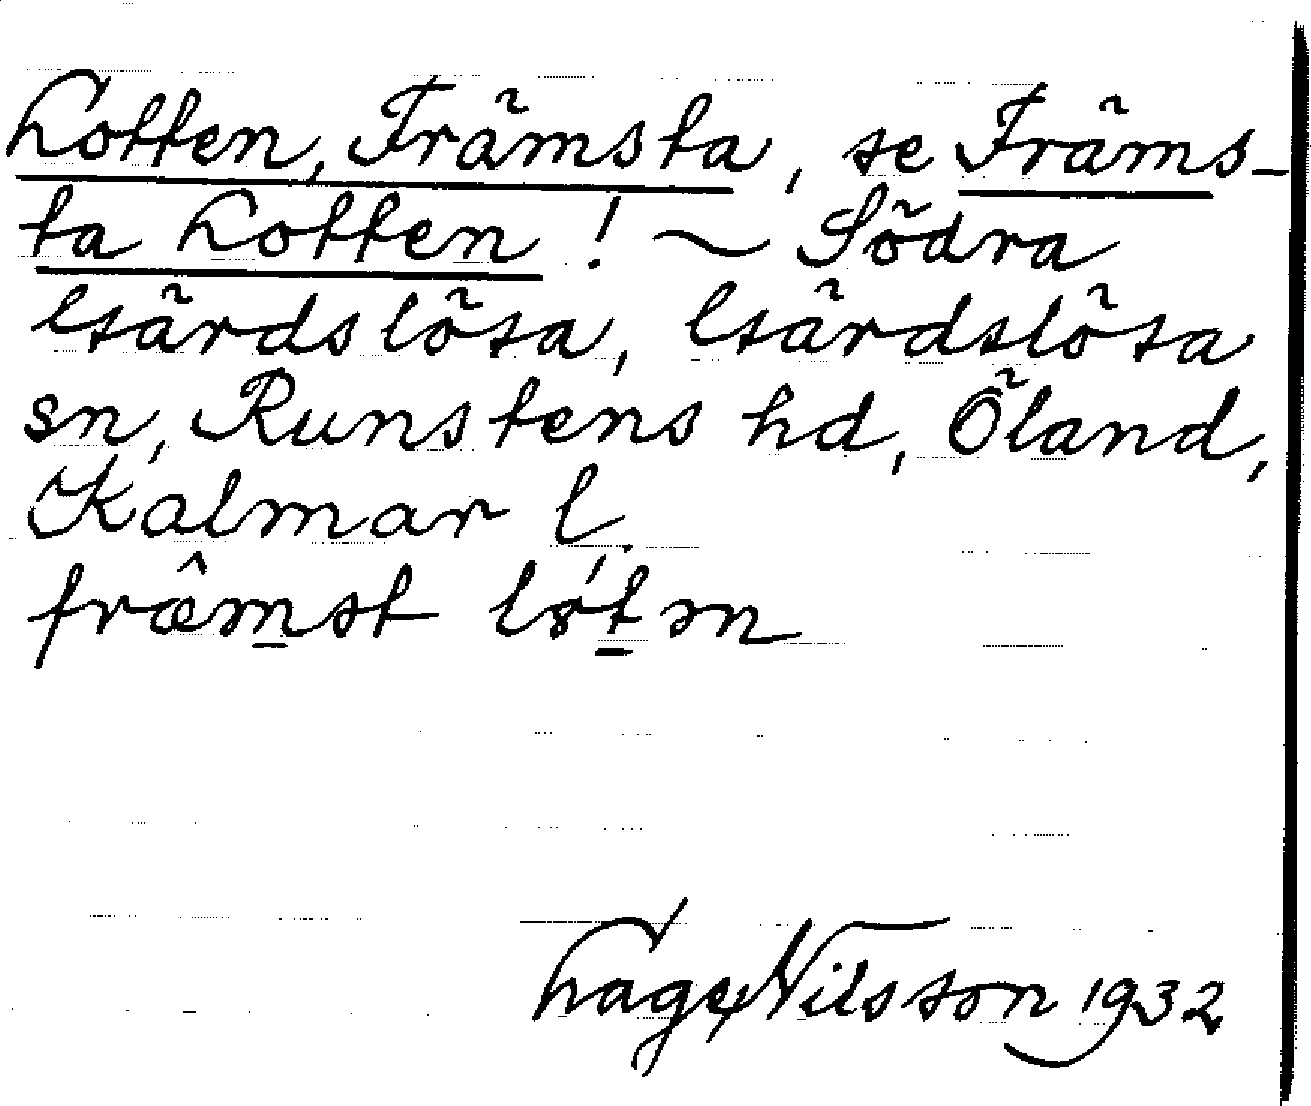 Lotten, Främsta, se Främs-
ta Lotten! ~ Södra
Gärdslösa, Gärdslösa
sn, Runstens hd, Öland,
Kalmar l.
Hage Nilsson 1932